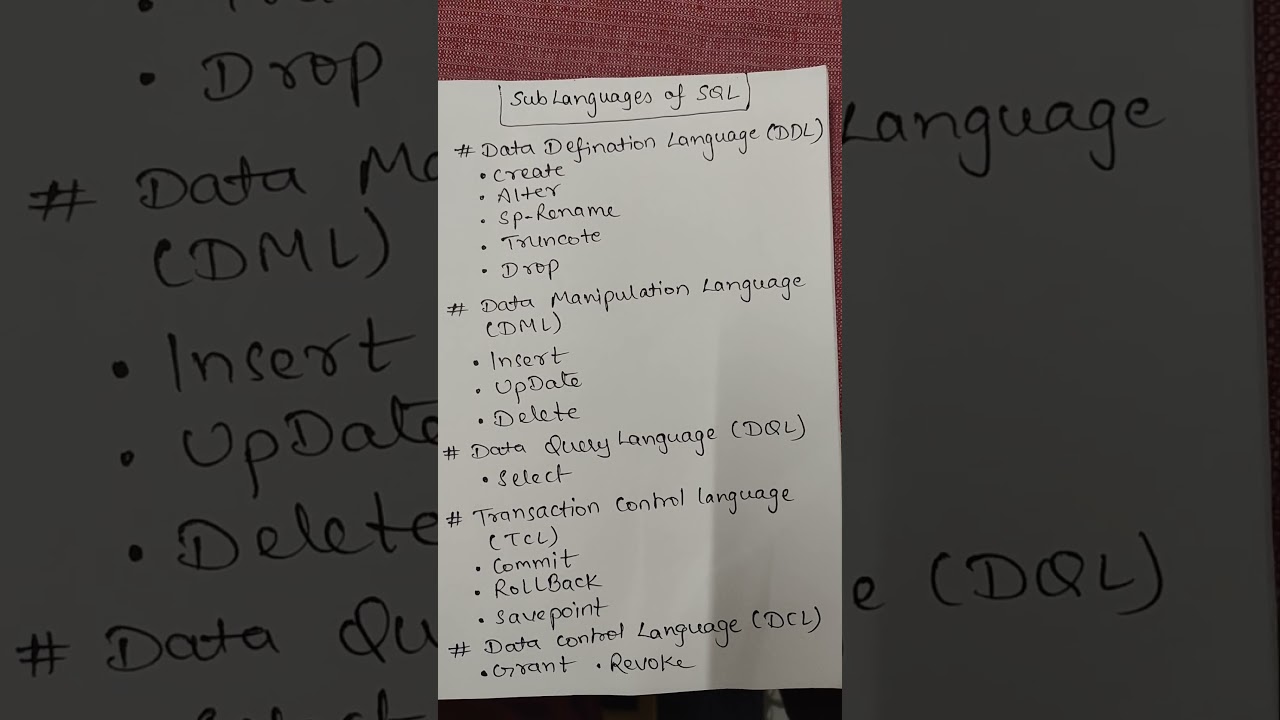 Sub Languages of SQL
# Data Defination Language (DDL)
• Create
• Alter
• Sp-Rename
• Truncote
• Drop
# Data Manipulation Language
(DML)
• Insert
• UpDate
• Delete
# Data Query Language (DQL)
• Select
# Transaction Control language
(TCL)
• Commit
• RollBack
• Savepoint
# Data Control Language (DCL)
• Grant • Revoke